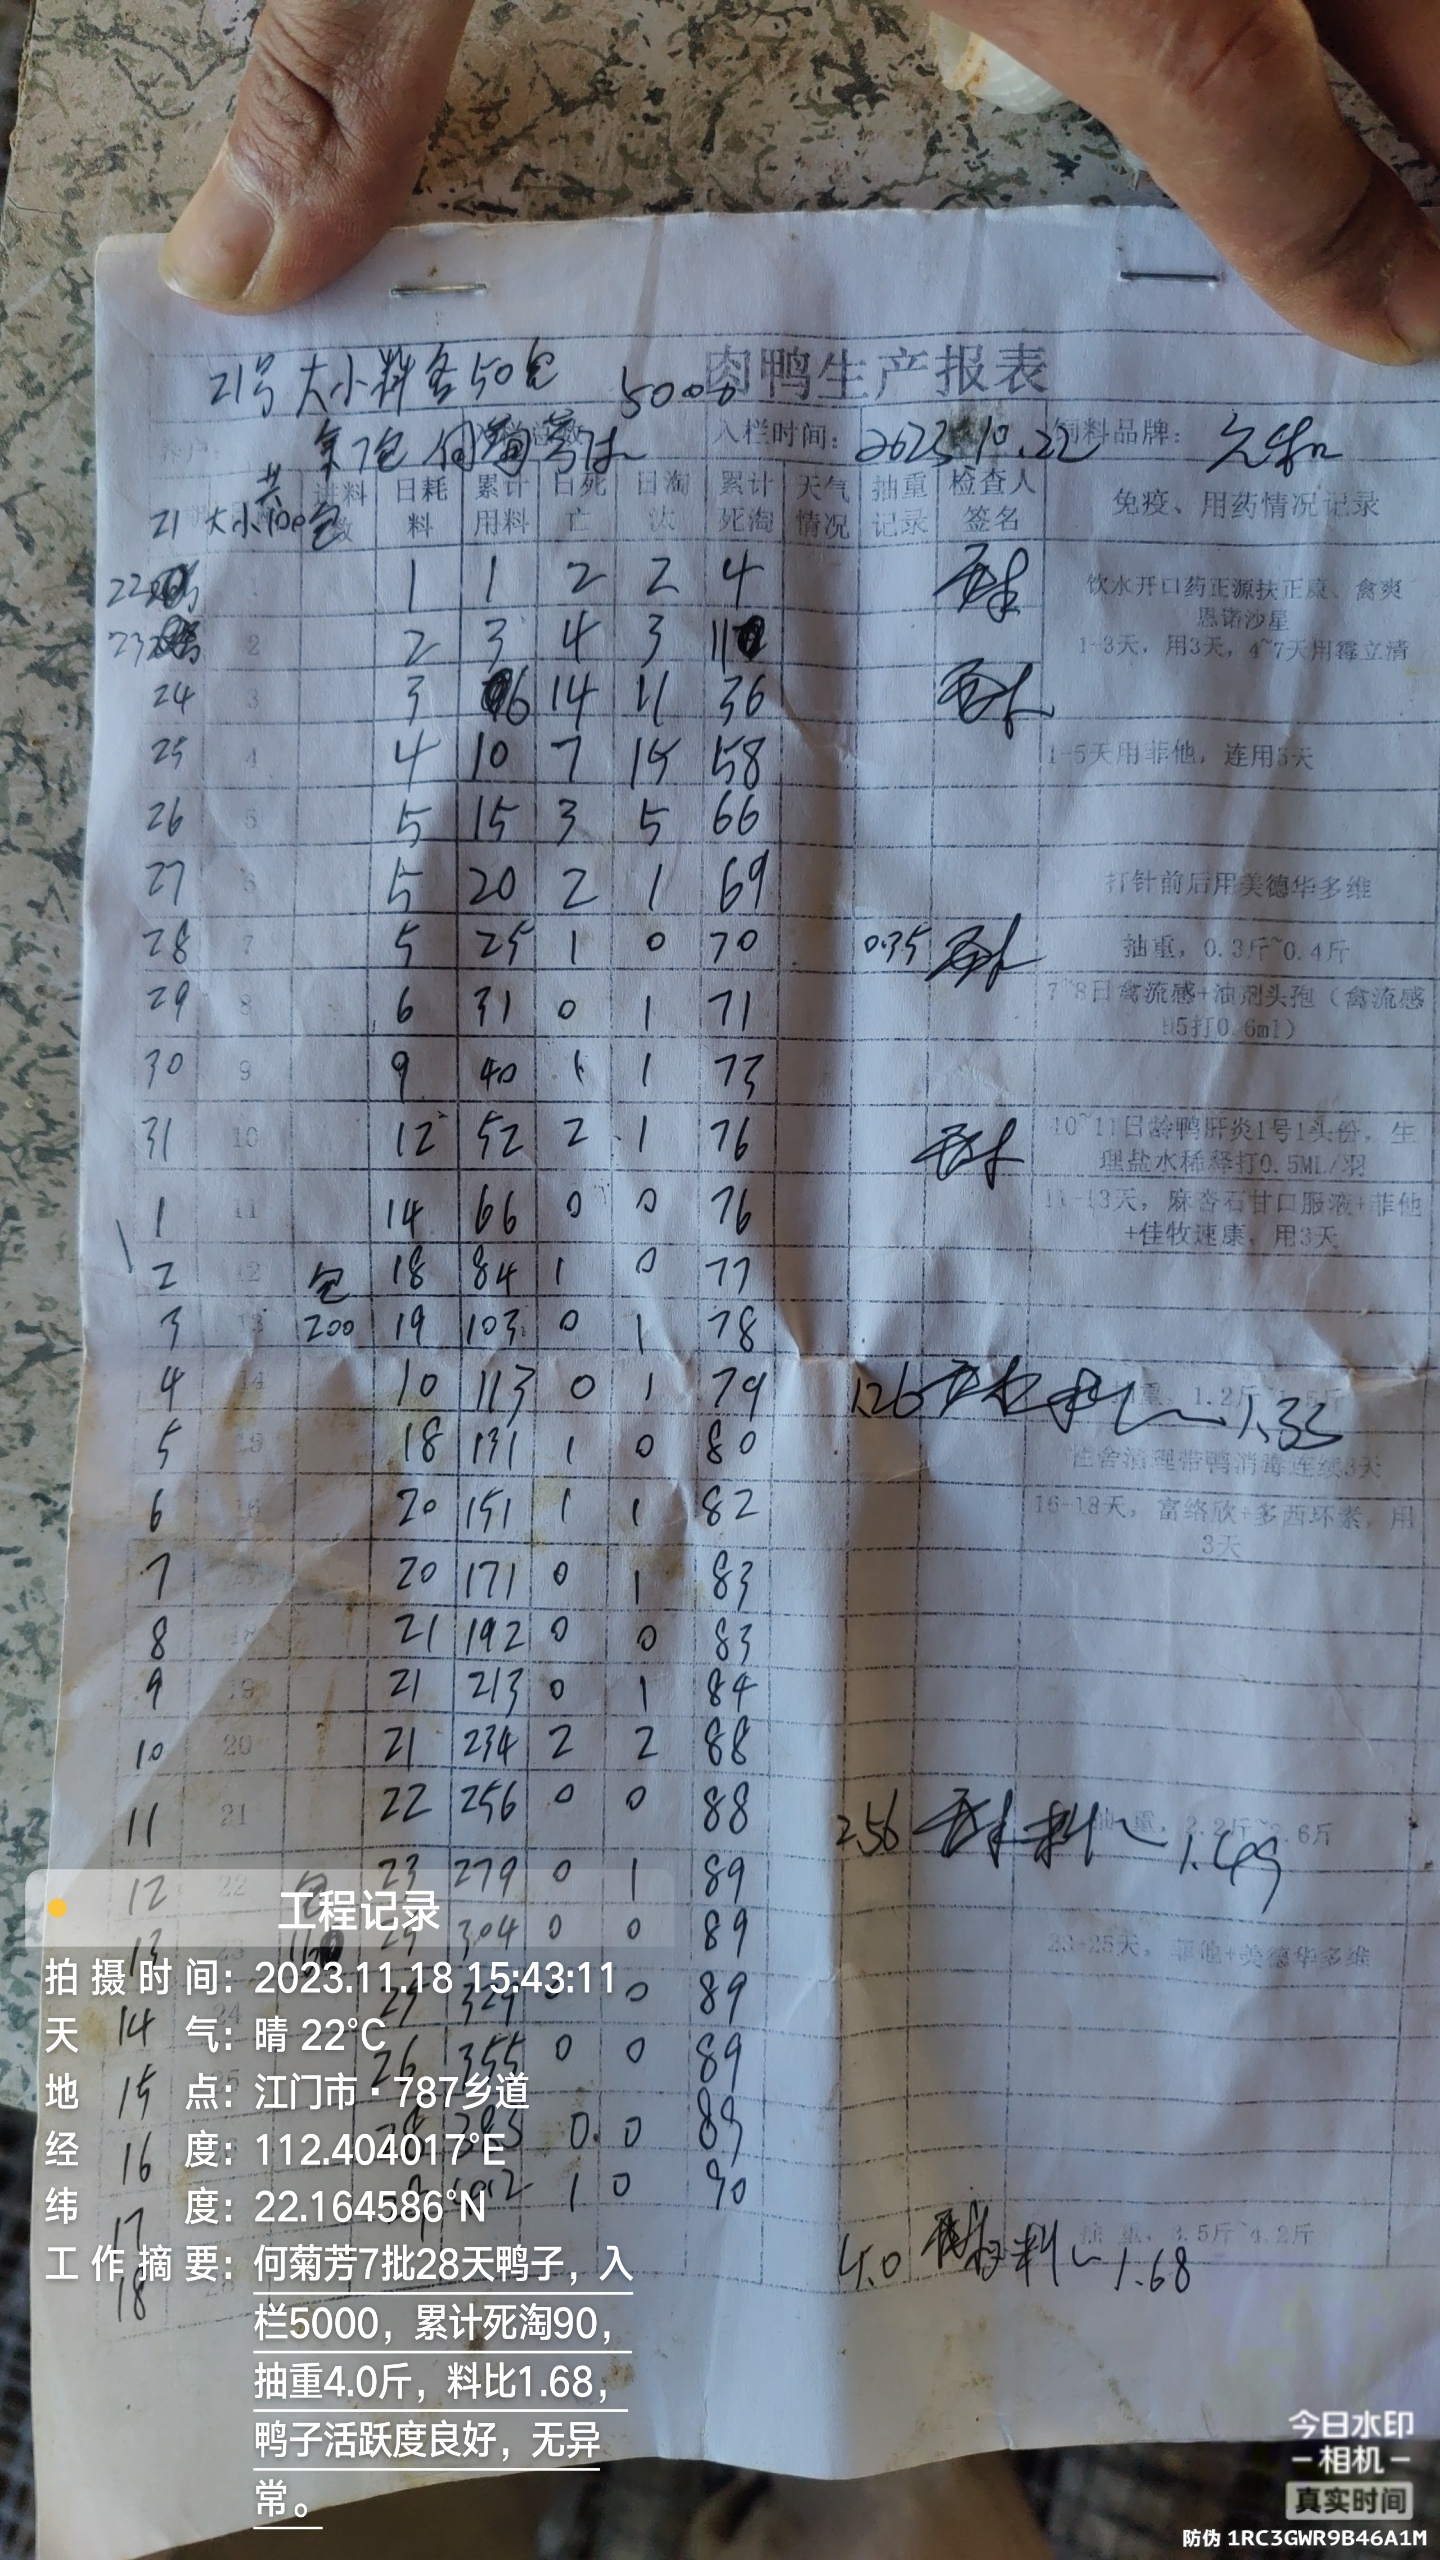 肉鸭生产报表
21号大小料各50包 5000
第7批 何菊芳 入栏时间: 2023.10.22 饲料品牌:
共
21 大小100包 进料数 日耗料 累计用料 日死亡 日淘汰 累计死淘 天气情况 抽重记录 检查人签名 免疫、用药情况记录
22 1 1 2 2 4 饮水开口药正源扶正康、禽爽
恩诺沙星
23 2 2 3 4 3 11 1-3天,用3天,4~7天用霉立清
24 3 3 6 14 11 36
25 4 4 10 7 15 58 1-5天用菲他,连用5天
26 5 5 15 3 5 66
27 6 5 20 2 1 69 打针前后用美德华多维
28 7 5 25 1 0 70 0.35 抽重,0.3斤~0.4斤
29 8 6 31 0 1 71 7~8日禽流感+油剂头孢(禽流感
H5打0.6ml)
30 9 9 40 1 1 73
31 10 12 52 2 1 76 10~11日龄鸭肝炎1号1头份,生
理盐水稀释打0.5ML/羽
1 11 14 66 0 0 76 11-13天,麻杏石甘口服液+菲他
+佳牧速康,用3天
2 12 包 18 84 1 0 77
3 13 200 19 103 0 1 78
4 14 10 113 0 1 79 1.26 料比 1.33 抽重,1.2斤
5 15 18 131 1 0 80 栏舍清理带鸭消毒连续3天
6 16 20 151 1 1 82 16-18天,富络欣+多西环素,用
3天
7 20 171 0 1 83
8 18 21 192 0 0 83
9 19 21 213 0 1 84
10 20 21 234 2 2 88
11 21 22 256 0 0 88 2.56 料比 1.49 抽重,2.2斤~2.6斤
12 22 包 23 279 0 1 89
13 23 25 304 0 0 89 23-25天,菲他+美德华多维
14 24 25 329 0 0 89
15 26 355 0 0 89
16 28 383 0 0 89
17 1 0 90
18 4.0 料比 1.68 抽重,3.5斤~4.2斤
工程记录
拍摄时间:2023.11.18 15:43:11
天气:晴 22°C
地点:江门市·787乡道
经度:112.404017°E
纬度:22.164586°N
工作摘要:何菊芳7批28天鸭子,入
栏5000,累计死淘90,
抽重4.0斤,料比1.68,
鸭子活跃度良好,无异
常。
今日水印
相机
真实时间
防伪 1RC3GWR9B46A1M